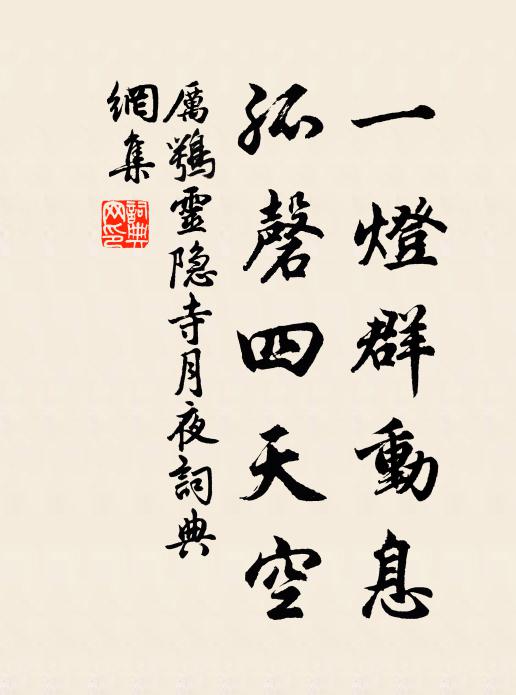 一燈群動息
孤磬四天空
厲鶚靈隐寺月夜詞典
網集
詞典
网印